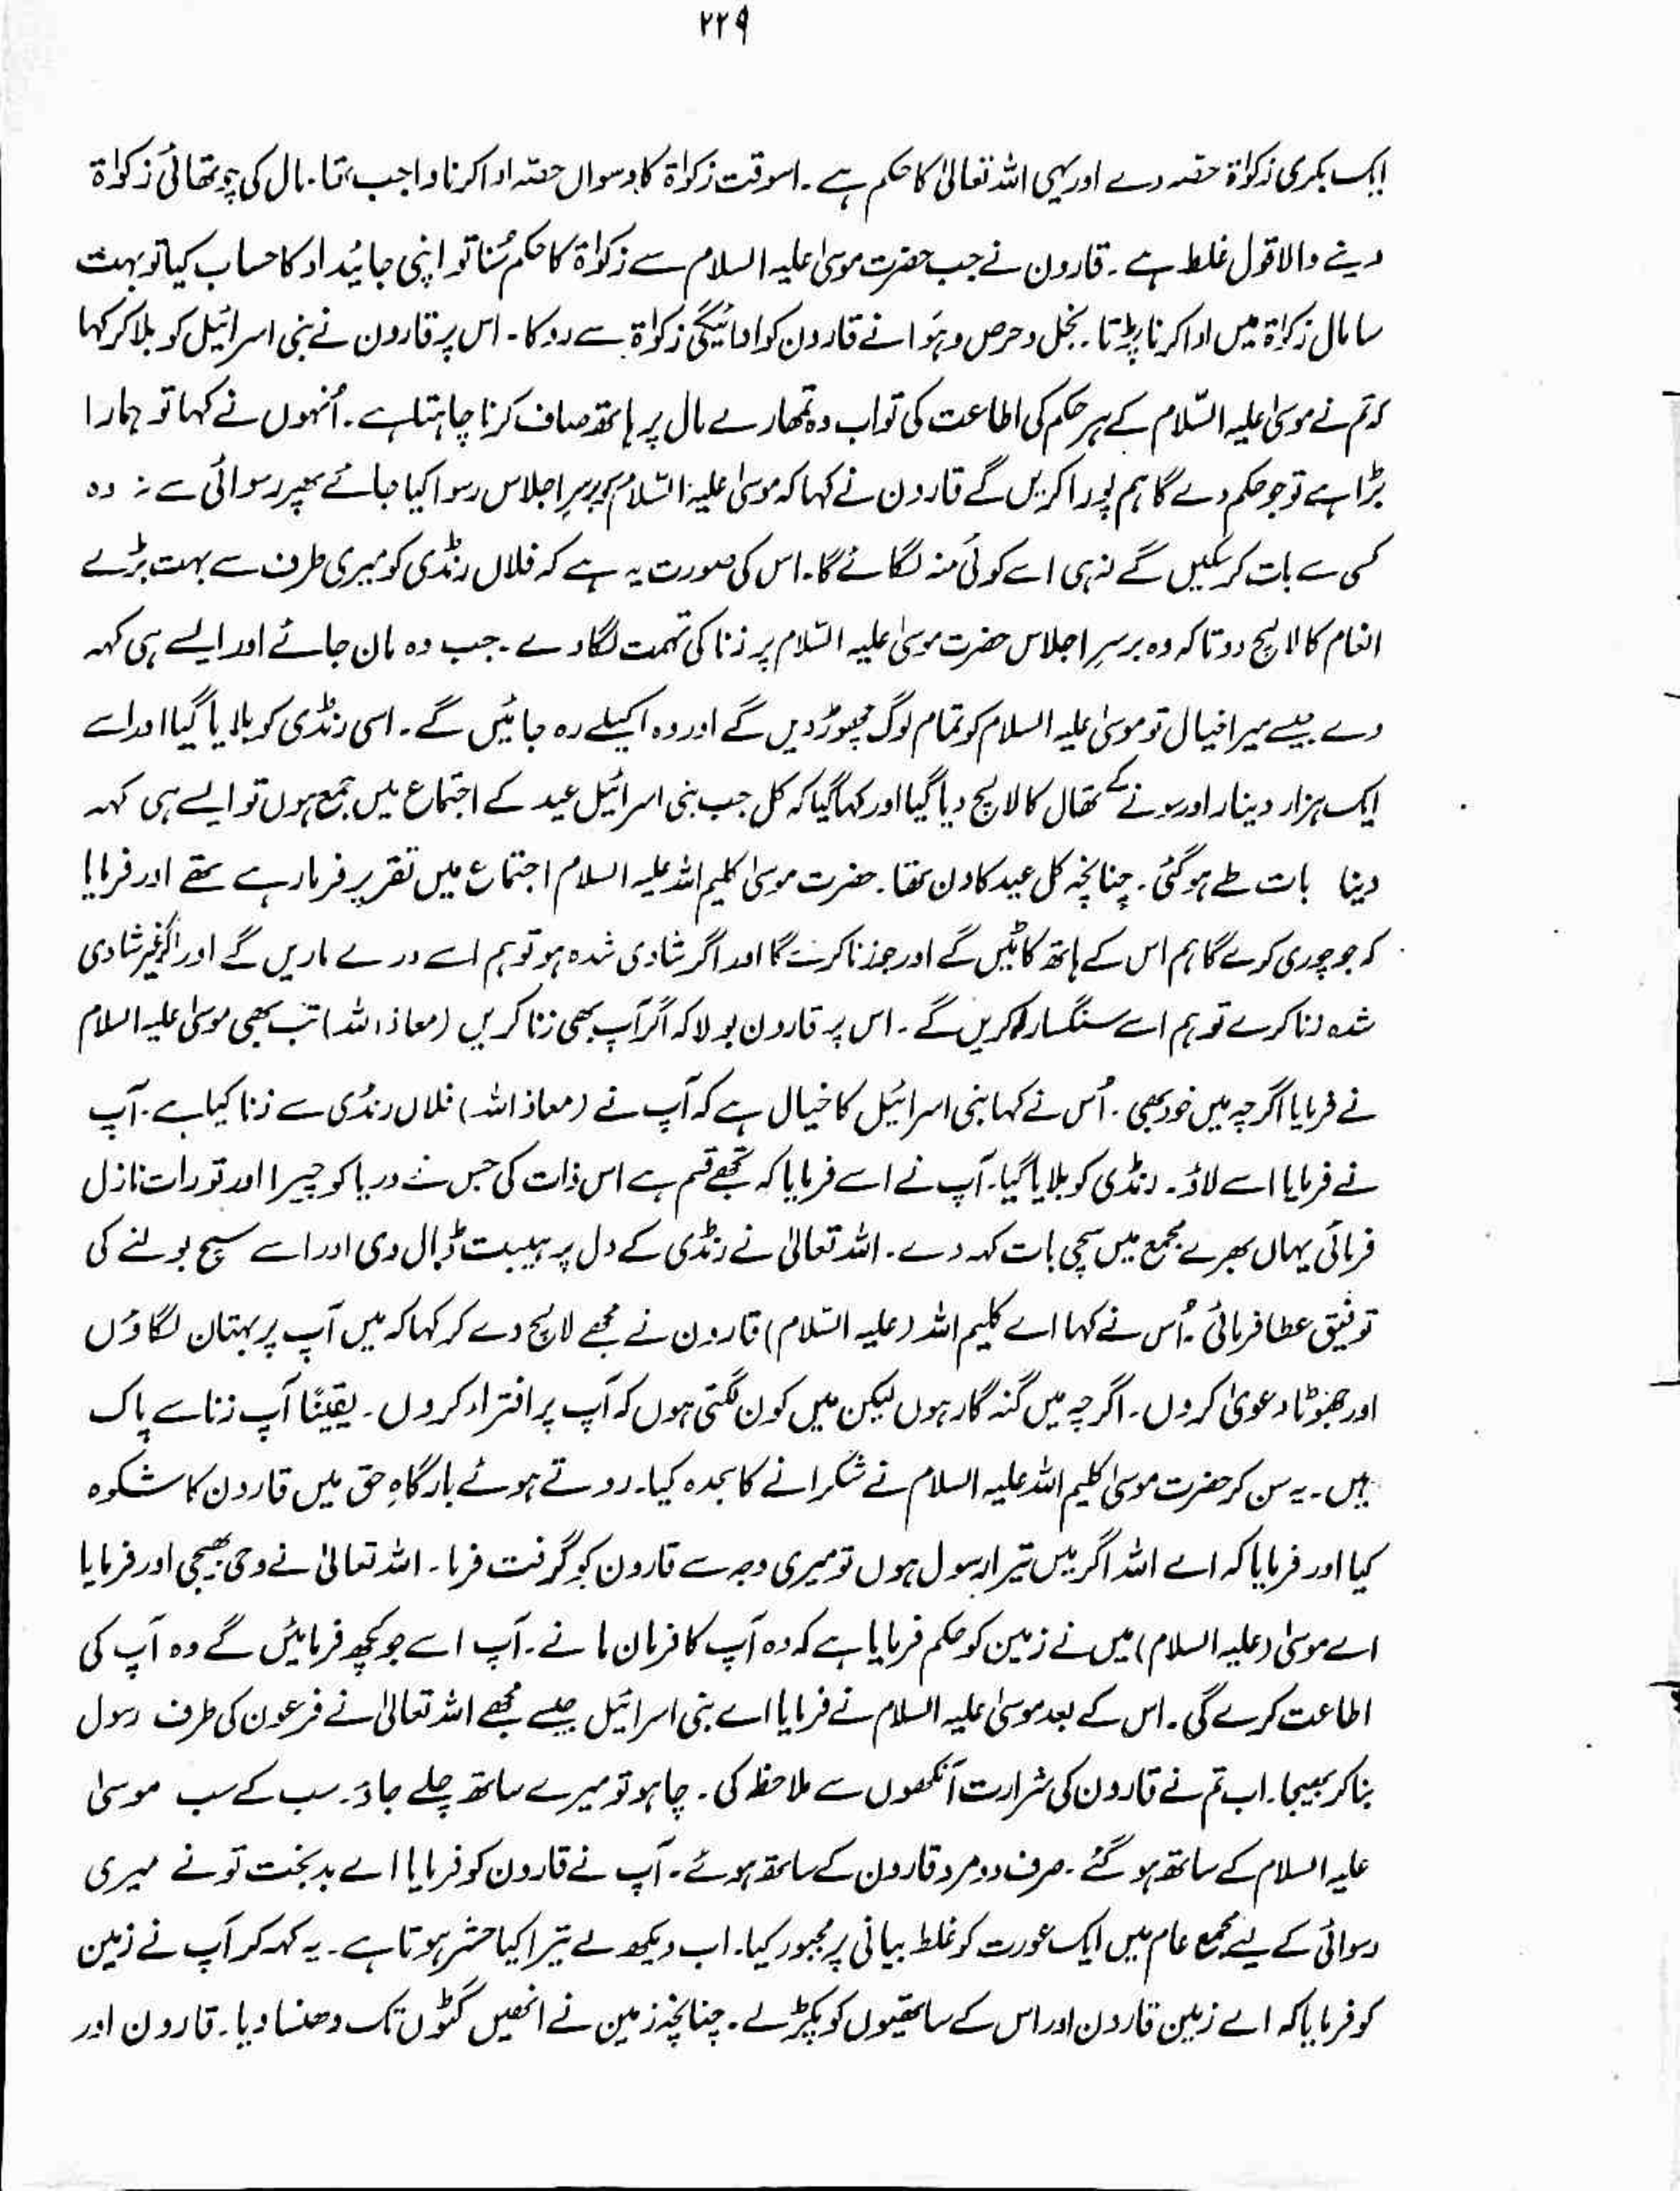 ۲۲۹
ایک بکری زکوٰۃ حصہ دے اور یہی اللہ تعالیٰ کا حکم ہے۔ اسوقت زکوٰۃ کا دسواں حصّہ ادا کرنا واجب تھا۔ مال کی چوتھائی زکوٰۃ
دینے والا قول غلط ہے۔ قارون نے جب حضرت موسیٰ علیہ السلام سے زکوٰۃ کا حکم سُنا تو اپنی جائیداد کا حساب کیا تو بہت
سا مال زکوٰۃ میں ادا کرنا پڑتا۔ بخل و حرص و ہَوا نے قارون کو ادائیگی زکوٰۃ سے روکا۔ اس پر قارون نے بنی اسرائیل کو بلا کر کہا
کہ تم نے موسیٰ علیہ السّلام کے ہر حکم کی اطاعت کی تو اب وہ تمھارے مال پر ہاتھ صاف کرنا چاہتا ہے۔ اُنہوں نے کہا تو ہمارا
بڑا ہے تو جو حکم دے گا ہم پورا کریں گے قارون نے کہا کہ موسیٰ علیہ السّلام کو برسرِ اجلاس رسوا کیا جائے پھر رسوائی سے نہ وہ
کسی سے بات کر سکیں گے نہ ہی اسے کوئی منہ لگائے گا۔ اس کی صورت یہ ہے کہ فلاں رنڈی کو میری طرف سے بہت بڑے
انعام کا لالچ دو تاکہ وہ برسرِ اجلاس حضرت موسیٰ علیہ السّلام پر زنا کی تہمت لگا دے۔ جب وہ مان جائے اور ایسے ہی کہہ
دے جیسے میرا خیال تو موسیٰ علیہ السلام کو تمام لوگ چھوڑ دیں گے اور وہ اکیلے رہ جائیں گے۔ اسی رنڈی کو بلایا گیا اور اسے
ایک ہزار دینار اور سونے کے تھال کا لالچ دیا گیا اور کہا گیا کہ کل جب بنی اسرائیل عید کے اجتماع میں جمع ہوں تو ایسے ہی کہہ
دینا بات طے ہوگئی۔ چنانچہ کل عید کا دن تھا۔ حضرت موسیٰ کلیم اللہ علیہ السلام اجتماع میں تقریر فرما رہے تھے اور فرمایا
کہ جو چوری کرے گا ہم اس کے ہاتھ کاٹیں گے اور جو زنا کرے گا اور اگر شادی شدہ ہو تو ہم اسے درے ماریں گے اور اگر غیر شادی
شدہ زنا کرے تو ہم اسے سنگسار کریں گے۔ اس پر قارون بولا کہ اگر آپ بھی زنا کریں (معاذ اللہ) تب بھی موسیٰ علیہ السلام
نے فرمایا اگرچہ میں خود بھی۔ اُس نے کہا بنی اسرائیل کا خیال ہے کہ آپ نے (معاذ اللہ) فلاں رنڈی سے زنا کیا ہے۔ آپ
نے فرمایا اسے لاؤ۔ رنڈی کو بلایا گیا۔ آپ نے اسے فرمایا کہ تجھے قسم ہے اس ذات کی جس نے دریا کو چیرا اور تورات نازل
فرمائی یہاں بھرے مجمع میں سچی بات کہہ دے۔ اللہ تعالیٰ نے رنڈی کے دل پر ہیبت ڈال دی اور اسے سچ بولنے کی
توفیق عطا فرمائی۔ اُس نے کہا اے کلیم اللہ (علیہ السّلام) قارون نے مجھے لالچ دے کر کہا کہ میں آپ پر بہتان لگاؤں
اور جھوٹا دعویٰ کروں۔ اگرچہ میں گنہ گار ہوں لیکن میں کون لگتی ہوں کہ آپ پر افتراء کروں۔ یقینًا آپ زنا سے پاک
ہیں۔ یہ سن کر حضرت موسیٰ کلیم اللہ علیہ السلام نے شکرانے کا سجدہ کیا۔ روتے ہوئے بارگاہِ حق میں قارون کا شکوہ
کیا اور فرمایا کہ اے اللہ اگر میں تیرا رسول ہوں تو میری وجہ سے قارون کو گرفت فرما۔ اللہ تعالیٰ نے وحی بھیجی اور فرمایا
اے موسیٰ (علیہ السلام) میں نے زمین کو حکم فرمایا ہے کہ وہ آپ کا فرمان مانے۔ آپ اسے جو کچھ فرمائیں گے وہ آپ کی
اطاعت کرے گی۔ اس کے بعد موسیٰ علیہ السلام نے فرمایا اے بنی اسرائیل جیسے مجھے اللہ تعالیٰ نے فرعون کی طرف رسول
بنا کر بھیجا۔ اب تم نے قارون کی شرارت آنکھوں سے ملاحظہ کی۔ چاہو تو میرے ساتھ چلے جاؤ۔ سب کے سب موسیٰ
علیہ السلام کے ساتھ ہو گئے۔ صرف دو مرد قارون کے ساتھ ہوئے۔ آپ نے قارون کو فرمایا اے بدبخت تو نے میری
رسوائی کے لیے مجمع عام میں ایک عورت کو غلط بیانی پر مجبور کیا۔ اب دیکھ لے تیرا کیا حشر ہوتا ہے۔ یہ کہہ کر آپ نے زمین
کو فرمایا کہ اے زمین قارون اور اس کے ساتھیوں کو پکڑ لے۔ چنانچہ زمین نے انھیں گٹوں تک دھنسا دیا۔ قارون اور